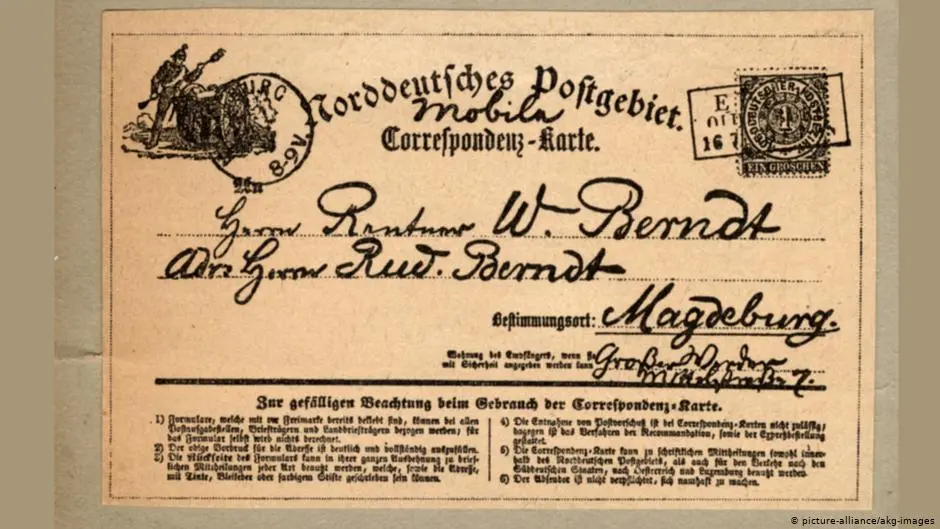 Norddeutsches Postgebiet.
Mobila
Correspondenz-Karte.
URG
8-9V.
NORDDEUTSCHER POSTBEZIRK
1
EIN GROSCHEN
16
An
Herrn Rentner W. Berndt
Adr: Herrn Rud. Berndt
Bestimmungsort: Magdeburg.
Wohnung des Empfängers, wenn sie
mit Sicherheit angegeben werden kann
Großer Werder
Mittelstraße 7.
Zur gefälligen Beachtung beim Gebrauch der Correspondenz-Karte.
1) Formulare, welche mit der Freimarke bereits beklebt sind, können bei allen
Postanstalten, Briefträgern und Landbriefträgern bezogen werden; für
das Formular selbst wird nichts berechnet.
2) Der obige Vordruck für die Adresse ist deutlich und vollständig auszufüllen.
3) Die Rückseite des Formulars kann in ihrer ganzen Ausdehnung zu brief-
lichen Mittheilungen jeder Art benutzt werden, welche, sowie die Adresse,
mit Tinte, Bleifeder oder farbigem Stifte geschrieben sein können.
4) Die Entnahme von Postvorschuß ist bei Correspondenz-Karten nicht zulässig;
dagegen ist das Verfahren der Recommandation, sowie der Expreßbestellung
gestattet.
5) Die Correspondenz-Karte kann zu schriftlichen Mittheilungen sowohl inner-
halb des Norddeutschen Postgebiets, als auch für den Verkehr nach den
Süddeutschen Staaten, nach Oesterreich und Luxemburg benutzt werden.
6) Der Absender ist nicht verpflichtet, sich namhaft zu machen.
© picture-alliance/akg-images